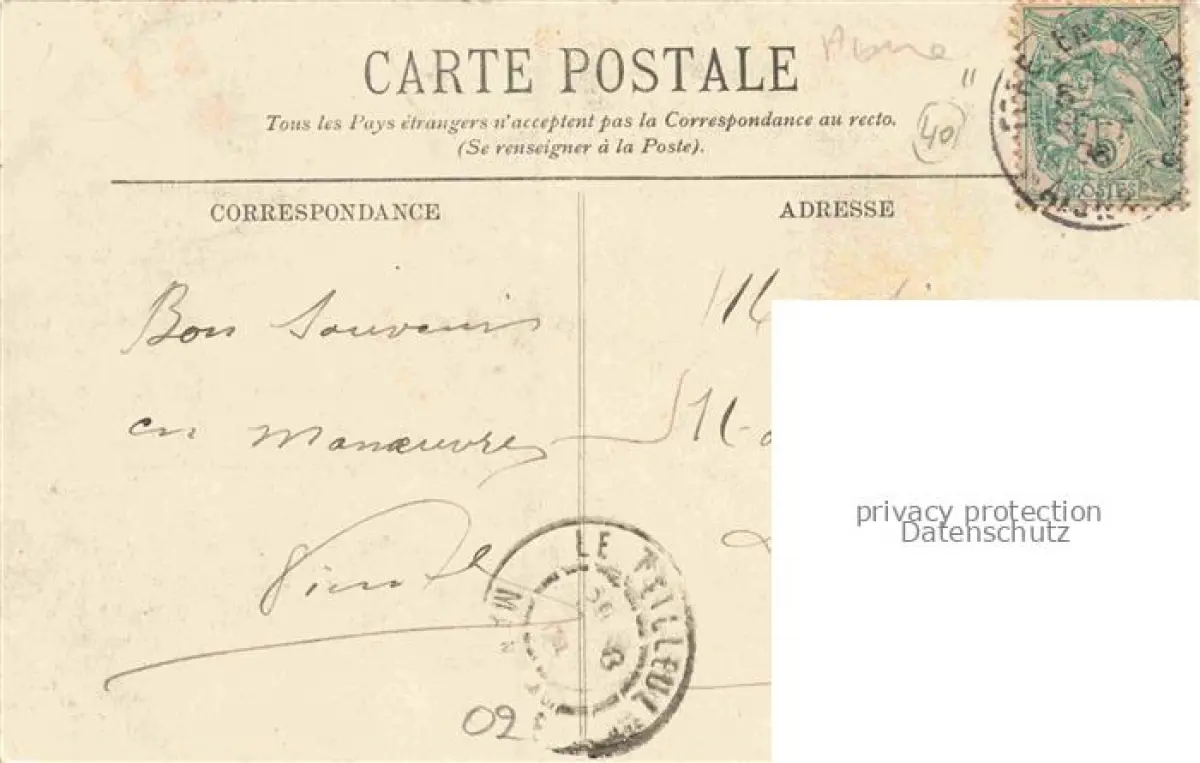 CARTE POSTALE
Aisne
"
40
Tous les Pays étrangers n'acceptent pas la Correspondance au recto.
(Se renseigner à la Poste).
FÈRE EN T
5
POSTES
CORRESPONDANCE
ADRESSE
Bon Souvenir
en manœuvres
LE TEILLEUL
MAN
02
privacy protection
Datenschutz